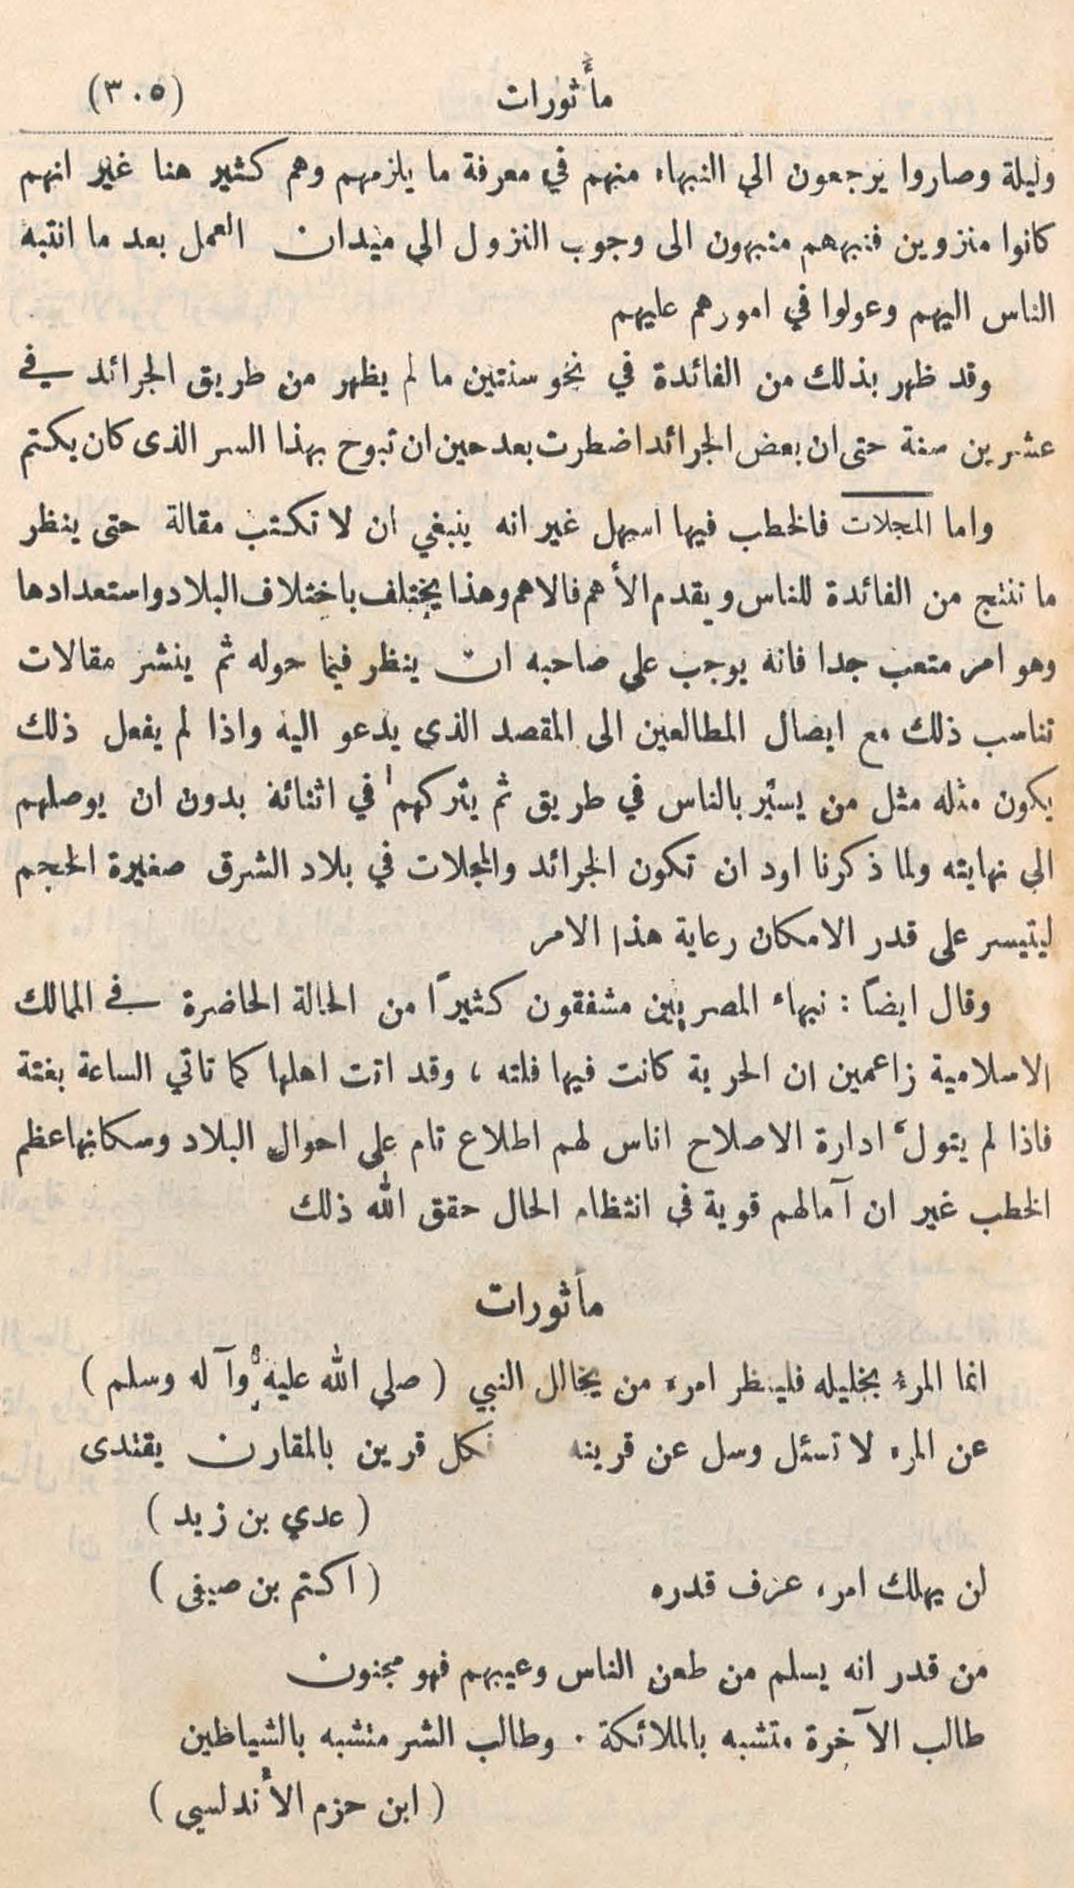 مأثورات (٣٠٥)
وليلة وصاروا يرجعون الى النبهاء منهم في معرفة ما يلزمهم وهم كثير هنا غير انهم
كانوا منزوين فنبههم منبهون الى وجوب النزول الى ميدان العمل بعد ما انتبه
الناس اليهم وعولوا في امورهم عليهم
وقد ظهر بذلك من الفائدة في نحو سنتين ما لم يظهر من طريق الجرائد في
عشرين سنة حتى ان بعض الجرائد اضطرت بعد حين ان تبوح بهذا السر الذى كان يكتم
واما المجلات فالخطب فيها اسهل غير انه ينبغي ان لا تكتب مقالة حتى ينظر
ما تنتج من الفائدة للناس ويقدم الأهم فالاهم وهذا يختلف باختلاف البلاد واستعدادها
وهو امر متعب جدا فانه يوجب على صاحبه ان ينظر فيما حوله ثم ينشر مقالات
تناسب ذلك مع ايصال المطالعين الى المقصد الذى يدعو اليه واذا لم يفعل ذلك
يكون مثله مثل من يسير بالناس في طريق ثم يتركهم في اثنائه بدون ان يوصلهم
الى نهايته ولما ذكرنا اود ان تكون الجرائد والمجلات في بلاد الشرق صغيرة الحجم
ليتيسر على قدر الامكان رعاية هذا الامر
وقال ايضاً : نبهاء المصريين مشفقون كثيرًا من الحالة الحاضرة في الممالك
الاسلامية زاعمين ان الحرية كانت فيها فلته ، وقد اتت اهلها كما تاتي الساعة بغتة
فاذا لم يتولَ ادارة الاصلاح اناس لهم اطلاع تام على احوال البلاد وسكانها عظم
الخطب غير ان آمالهم قوية في انتظام الحال حقق الله ذلك
مأثورات
انما المرء بخليله فلينظر امرء من يخالل النبي ( صلى الله عليه وآله وسلم )
عن المرء لا تسئل وسل عن قرينه فكل قرين بالمقارن يقتدى
( عدي بن زيد )
لن يهلك امرء عرف قدره ( اكتم بن صيفى )
من قدر انه يسلم من طعن الناس وعيبهم فهو مجنون
طالب الآخرة متشبه بالملائكة . وطالب الشر متشبه بالشياطين
( ابن حزم الأندلسي )